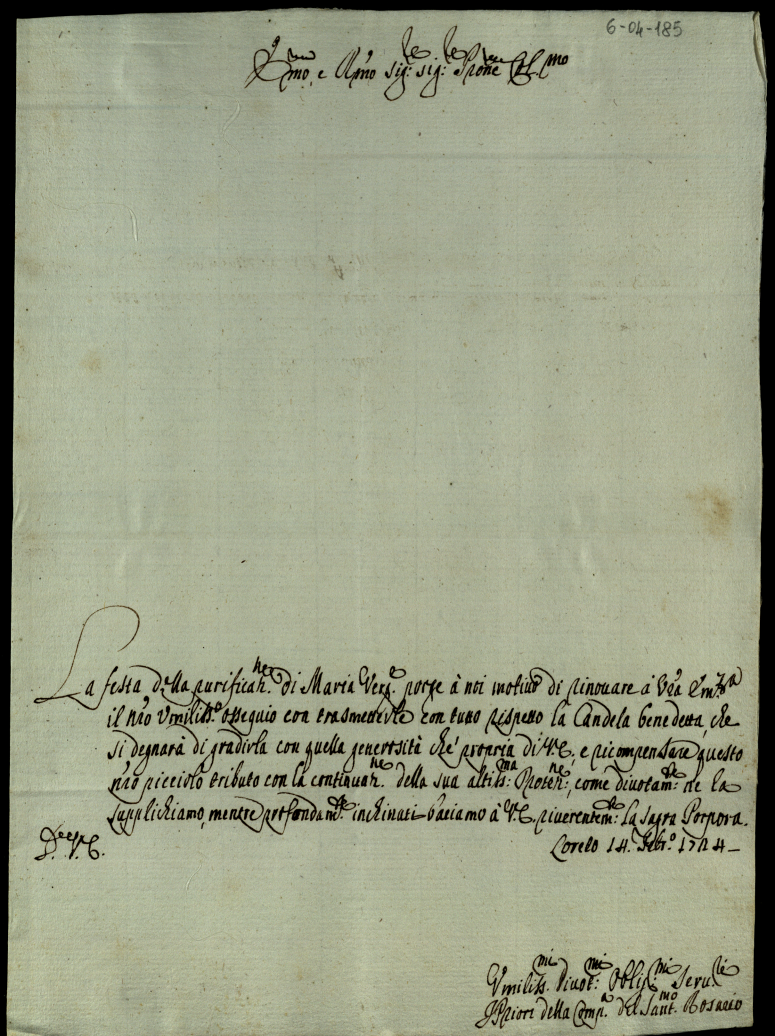 6-04-185
E.mo, e R.mo Sig.re Sig.re P.rone Col.mo
La festa della purificaz.ne di Maria Verg.e porge à noi motivo di rinouare à V.ra Em.za
il n.ro Vmiliss.o ossequio con trasmetterle con tutto rispetto la Candela benedetta, che
si degnarà di gradirla con quella generosità ch'è propria di V.E., e ricompensare questo
n.ro picciolo tributo con la continuaz.ne della sua altiss.ma Protez.ne, come diuotam.te ne la
supplichiamo, mentre profondam.te inchinati baciamo à V.E. riuerentem.te la sagra Porpora.
D. V.E. Loreto 14. Febr.o 1724
Vmiliss.mi Diuot.mi Oblig.mi Seru.ri
I Priori della Comp.a del Sant.mo Rosario